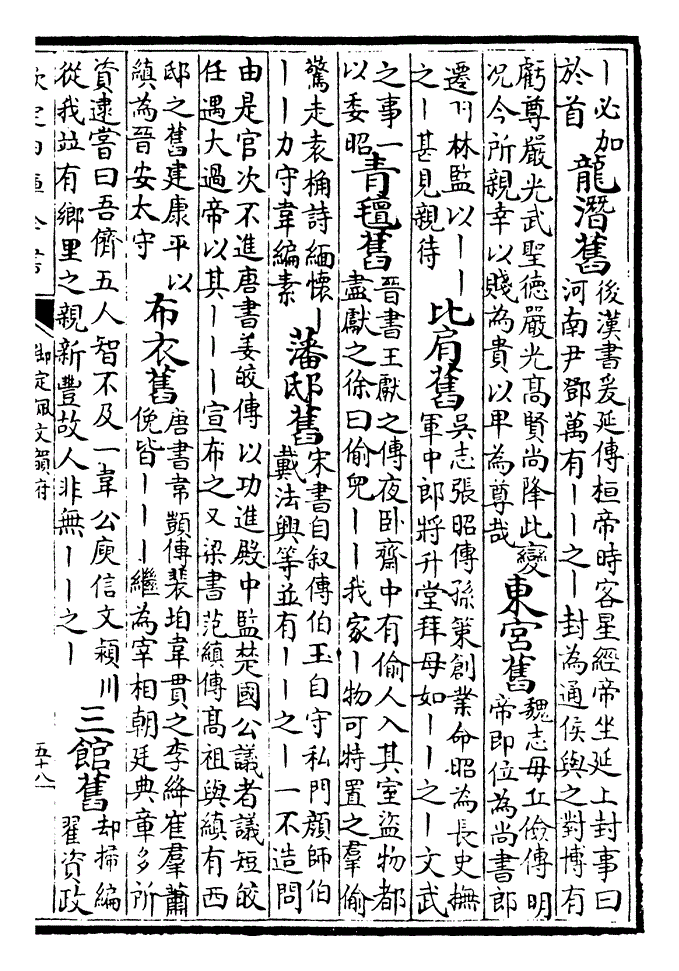 丨必加
於首
龍潛舊
後漢書爰延傳桓帝時客星經帝坐延上封事曰
河南尹鄧萬有丨丨之丨封為通侯與之對博有
虧尊嚴光武聖德嚴光髙賢尚降此變
况今所親幸以賤為貴以卑為尊哉
東宫舊
魏志毋丘儉傳明
帝即位為尚書郎
遷羽林監以丨丨
之丨甚見親待
比肩舊
吳志張昭傳孫策創業命昭為長史撫
軍中郎將升堂拜母如丨丨之丨文武
之事一
以委昭
青氊舊
晉書王獻之傳夜卧齋中有偷人入其室盜物都
盡獻之徐曰偷兒丨丨我家丨物可特置之羣偷
驚走袁桷詩緬懷丨
丨丨力守韋編素
藩邸舊
宋書自叙傳伯玉自守私門顔師伯
戴法興等並有丨丨之丨一不造問
由是官次不進唐書姜皎傳以功進殿中監楚國公議者議短皎
任遇大過帝以其丨丨丨宣布之又梁書范縝傳髙祖與縝有西
邸之舊建康平以
縝為晉安太守
布衣舊
唐書韋顗傳裴垍韋貫之李絳崔羣蕭
俛皆丨丨丨繼為宰相朝廷典章多所
資逮嘗曰吾儕五人智不及一韋公庾信文潁川
從我竝有鄉里之親新豐故人非無丨丨之丨
三館舊
却掃編
翟資政
欽定四庫全書
御定佩文韻府
五十八